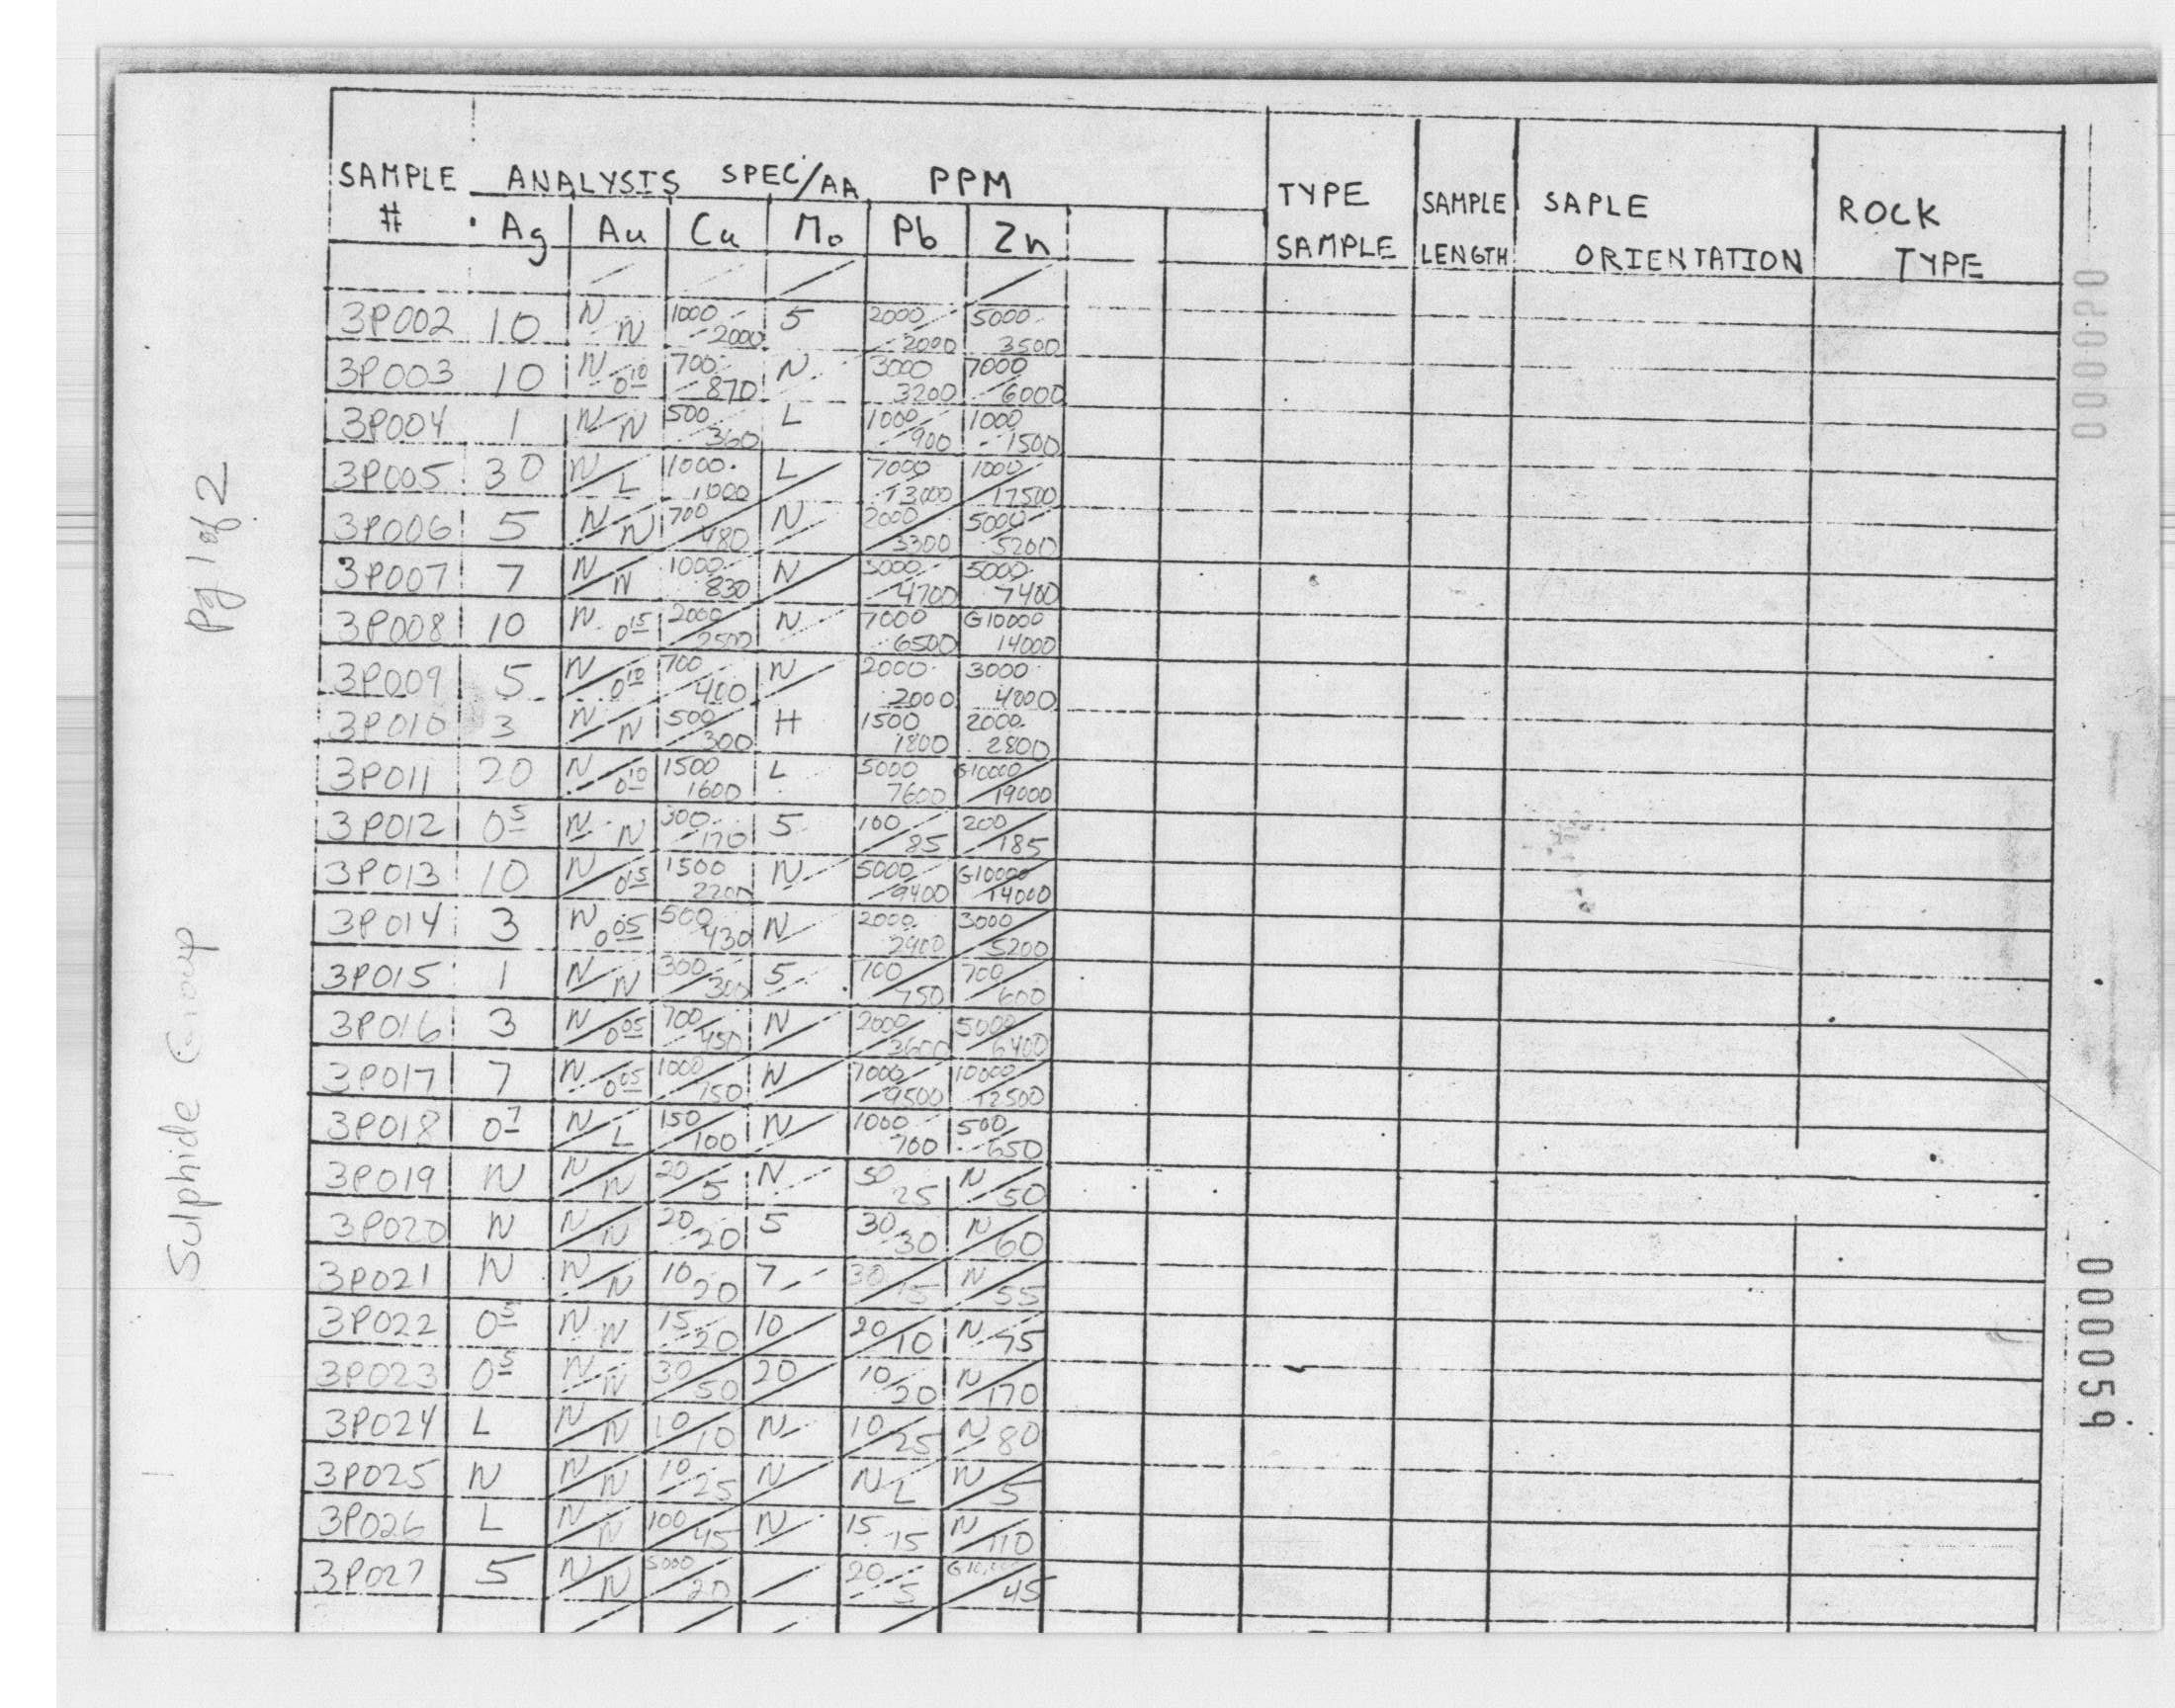 SAMPLE ANALYSTS SPEC/AA PPM TYPE SAMPLE SAPLE ROCK
# Ag Au Cu Mo Pb Zn SAMPLE LENGTH ORIENTATION TYPE
3P002 10 N/N 1000/2000 5 2000/2000 5000/3500
3P003 10 N/0.10 700/870 N 3000/3200 7000/6000
3P004 1 N/N 500/360 L 1000/900 1000/1500
3P005 30 N/L 1000/1000 L 7000/13000 1000/17500
3P006 5 N/N 700/480 N 2000/3300 5000/5200
3P007 7 N/N 1000/830 N 5000/4700 5000/7400
3P008 10 N/0.15 2000/2500 N 7000/6500 G10000/14000
3P009 5 N/0.10 700/400 N 2000/2000 3000/4800
3P010 3 N/N 500/300 H 1500/1800 2000/2800
3P011 20 N/0.10 1500/1600 L 5000/7600 G10000/19000
3P012 0.5 N/N 300/170 5 100/85 200/185
3P013 10 N/0.15 1500/2200 N 5000/9400 G10000/14000
3P014 3 N/0.05 500/430 N 2000/2900 3000/5200
3P015 1 N/N 300/300 5 700/750 700/600
3P016 3 N/0.05 700/450 N 2000/3600 5000/6400
3P017 7 N/0.05 1000/750 N 7000/9500 10000/12500
3P018 0.7 N/L 150/100 N 1000/700 500/650
3P019 N N/N 20/5 N 50/25 N/50
3P020 N N/N 20/20 5 30/30 N/60
3P021 N N/N 10/20 7 30/15 N/55
3P022 0.5 N/N 15/20 10 20/10 N/75
3P023 0.5 N/N 30/50 20 10/20 N/170
3P024 L N/N 10/10 N 10/25 N/80
3P025 N N/N 10/25 N N/L N/5
3P026 L N/N 100/45 N 15/15 N/110
3P027 5 N/N 5000/20 20/5 /45
Pg 1 of 2
Sulphide Group
000060
000059